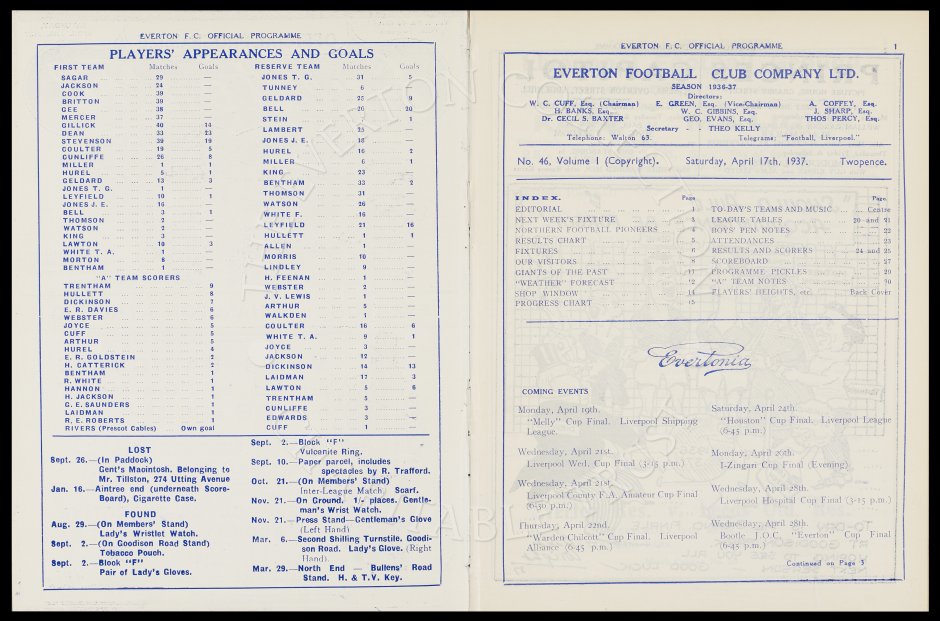 EVERTON F.C. OFFICIAL PROGRAMME
PLAYERS' APPEARANCES AND GOALS
FIRST TEAM Matches Goals
SAGAR 29 —
JACKSON 24 —
COOK 39 —
BRITTON 39 —
GEE 38 —
MERCER 37 —
GILLICK 40 14
DEAN 33 23
STEVENSON 39 19
COULTER 19 5
CUNLIFFE 26 8
MILLER 1 1
HUREL 5 1
GELDARD 13 3
JONES T. G. 1 —
LEYFIELD 10 1
JONES J. E. 16 —
BELL 3 1
THOMSON 2 —
WATSON 2 —
KING 3 —
LAWTON 10 3
WHITE T. A. 1 —
MORTON 8 —
BENTHAM 1 —
"A" TEAM SCORERS
TRENTHAM 9
HULLETT 8
DICKINSON 7
E. R. DAVIES 6
WEBSTER 6
JOYCE 5
CUFF 5
ARTHUR 5
HUREL 4
E. R. GOLDSTEIN 2
H. CATTERICK 2
BENTHAM 1
R. WHITE 1
HANNON 1
H. JACKSON 1
G. E. SAUNDERS 1
LAIDMAN 1
R. E. ROBERTS 1
RIVERS (Prescot Cables) Own goal
RESERVE TEAM Matches Goals
JONES T. G. 31 5
TUNNEY 6 —
GELDARD 25 9
BELL 20
STEIN 1
LAMBERT 25 —
JONES J. E. 18 —
HUREL 16 2
MILLER 6 1
KING 23 —
BENTHAM 33 2
THOMSON 31 —
WATSON 26 —
WHITE F. 16 —
LEYFIELD 21 16
HULLETT 1 1
ALLEN 1 —
MORRIS 10 —
LINDLEY 9 —
H. FEENAN 1 —
WEBSTER 2 —
J. V. LEWIS 1 —
ARTHUR 5 —
WALKDEN 1 —
COULTER 16 6
WHITE T. A. 9 1
JOYCE 3 —
JACKSON 12 —
DICKINSON 14 13
LAIDMAN 17 3
LAWTON 5 6
TRENTHAM 5 —
CUNLIFFE 3 —
EDWARDS 3 —
CUFF 1 —
LOST
Sept. 26.—(In Paddock)
Gent's Macintosh. Belonging to
Mr. Tillston, 274 Utting Avenue
Jan. 16.—Aintree end (underneath Score-
Board), Cigarette Case.
FOUND
Aug. 29.—(On Members' Stand)
Lady's Wristlet Watch.
Sept. 2.—(On Goodison Road Stand)
Tobacco Pouch.
Sept. 2.—Block "F"
Pair of Lady's Gloves.
Sept. 2.—Block "F"
Vulcanite Ring.
Sept. 10.—Paper parcel, includes
spectacles by R. Trafford.
Oct. 21.—(On Members' Stand)
Inter-League Match. Scarf.
Nov. 21.—On Ground. 1/- places. Gentle-
man's Wrist Watch.
Nov. 21.—Press Stand—Gentleman's Glove
(Left Hand)
Mar. 6.—Second Shilling Turnstile. Goodi-
son Road. Lady's Glove. (Right
Hand).
Mar. 29.—North End — Bullens' Road
Stand. H. & T.V. Key.
EVERTON F.C. OFFICIAL PROGRAMME 1
EVERTON FOOTBALL CLUB COMPANY LTD.
SEASON 1936-37
Directors:
W. C. CUFF, Esq. (Chairman) E. GREEN, Esq. (Vice-Chairman) A. COFFEY, Esq.
H. BANKS, Esq. W. C. GIBBINS, Esq. J. SHARP, Esq.
Dr. CECIL S. BAXTER GEO. EVANS, Esq. THOS PERCY, Esq.
Secretary - - THEO KELLY
Telephone: Walton 63. Telegrams: "Football, Liverpool."
No. 46, Volume 1 (Copyright). Saturday, April 17th, 1937. Twopence.
INDEX. Page
EDITORIAL 1
NEXT WEEK'S FIXTURE 3
NORTHERN FOOTBALL PIONEERS 4
RESULTS CHART 5
FIXTURES 6
OUR VISITORS 8
GIANTS OF THE PAST 11
"WEATHER" FORECAST 12
SHOP WINDOW 14
PROGRESS CHART 15
Page
TO-DAY'S TEAMS AND MUSIC Centre
LEAGUE TABLES 20 and 21
BOYS' PEN NOTES 22
ATTENDANCES 23
RESULTS AND SCORERS 24 and 25
SCOREBOARD 27
PROGRAMME PICKLES 29
"A" TEAM NOTES 30
PLAYERS' HEIGHTS, etc. Back Cover
Evertonia
COMING EVENTS
Monday, April 19th.
"Melly" Cup Final. Liverpool Shipping
League.
Wednesday, April 21st.
Liverpool Wed. Cup Final (3-15 p.m.)
Wednesday, April 21st.
Liverpool County F.A. Amateur Cup Final
(6-30 p.m.)
Thursday, April 22nd.
"Warden Chilcott" Cup Final. Liverpool
Alliance (6-45 p.m.)
Saturday, April 24th.
"Houston" Cup Final. Liverpool League
(6-45 p.m.)
Monday, April 26th.
I-Zingari Cup Final (Evening).
Wednesday, April 28th.
Liverpool Hospital Cup Final (3-15 p.m.)
Wednesday, April 28th.
Bootle J.O.C. "Everton" Cup Final
(6-45 p.m.)
Continued on Page 3